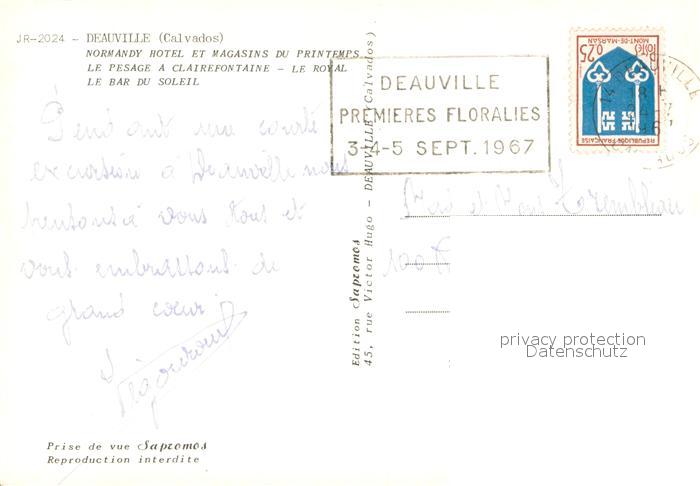 JR-2024 - DEAUVILLE (Calvados)
NORMANDY HOTEL ET MAGASINS DU PRINTEMPS
LE PESAGE A CLAIREFONTAINE - LE ROYAL
LE BAR DU SOLEIL
DEAUVILLE
PREMIERES FLORALIES
3-4-5 SEPT. 1967
0,25
MONT-DE-MARSAN
REPUBLIQUE FRANÇAISE
une courte
excursion à Deauville nous
à vous tous et
vous embrassons de
grand cœur
et Trembleau
Edition Sapromos
45, rue Victor Hugo - DEAUVILLE (Calvados)
privacy protection
Datenschutz
Prise de vue Sapromos
Reproduction interdite